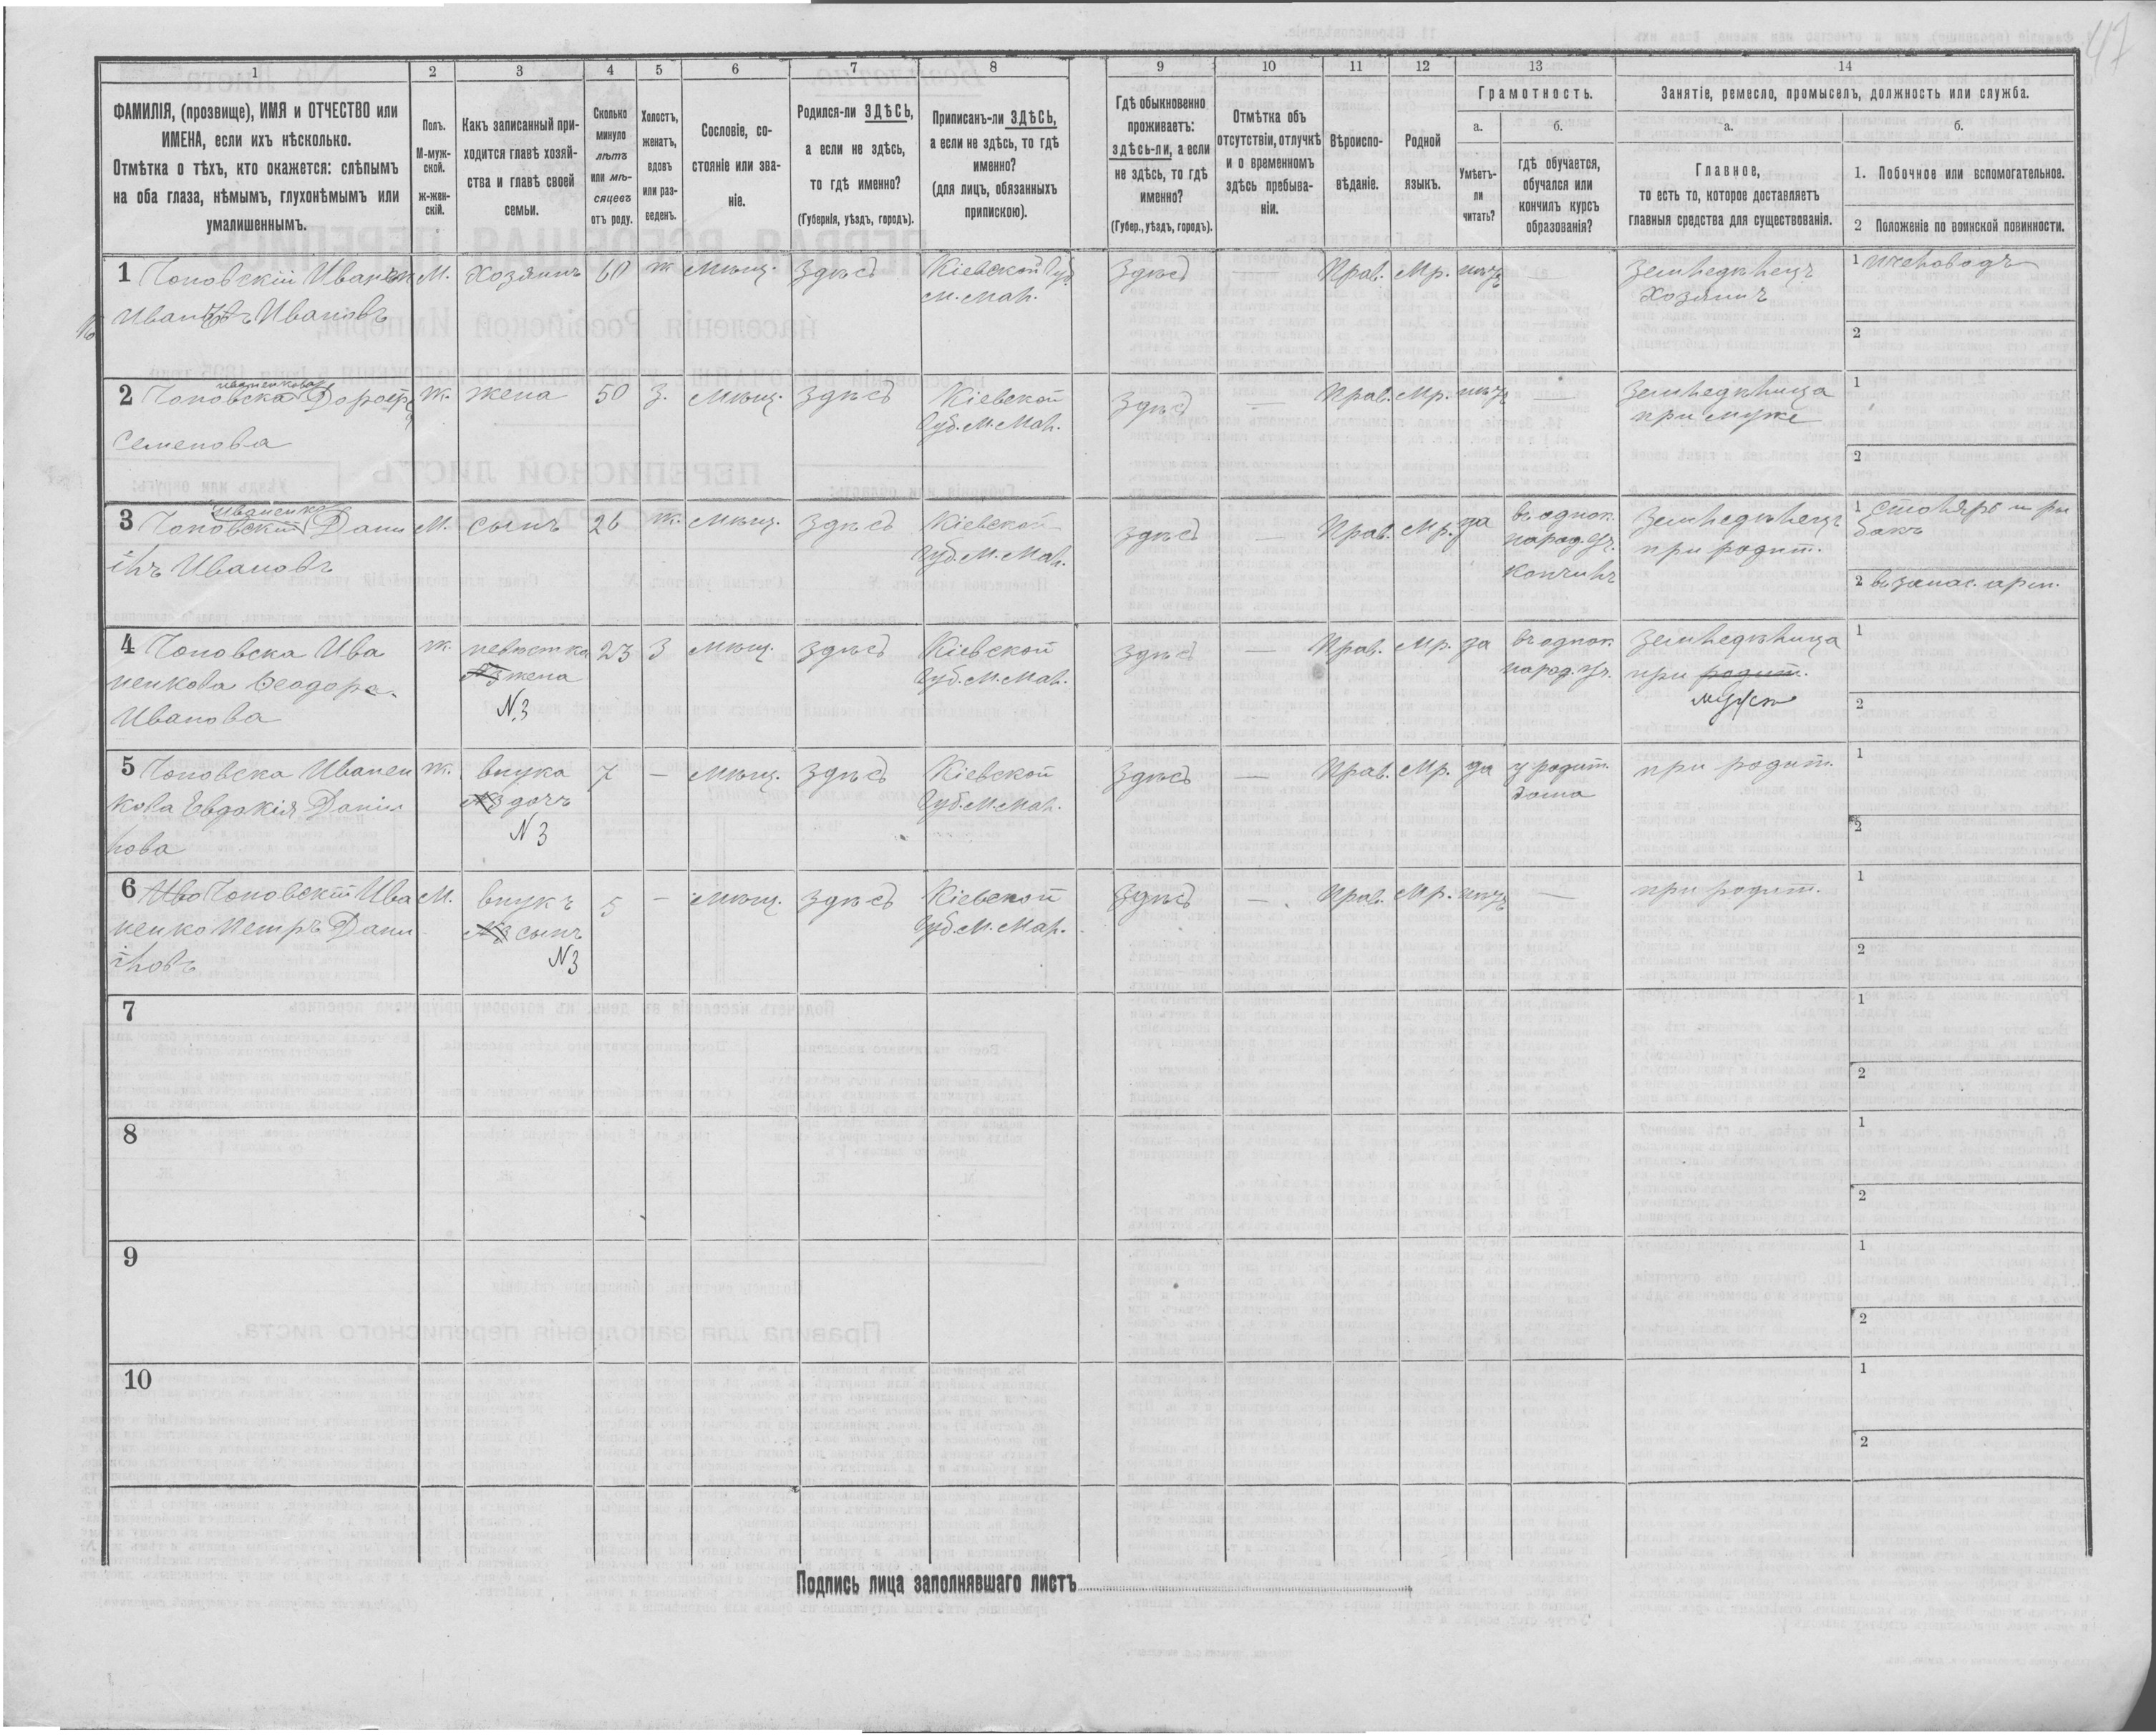 47
1
2
3
4
5
6
7
8
9
10
11
12
13
14
ФАМИЛІЯ, (прозвище), ИМЯ и ОТЧЕСТВО или
ИМЕНА, если ихъ нѣсколько.
Отмѣтка о тѣхъ, кто окажется: слѣпымъ
на оба глаза, нѣмымъ, глухонѣмымъ или
умалишеннымъ.
Полъ.
М-муж-
ской.
ж-жен-
скій.
Какъ записанный при-
ходится главѣ хозяй-
ства и главѣ своей
семьи.
Сколько
минуло
лѣтъ
или мѣ-
сяцевъ
отъ роду.
Холостъ,
женатъ,
вдовъ
или раз-
веденъ.
Сословіе, со-
стояніе или зва-
ніе.
Родился-ли ЗДѢСЬ,
а если не здѣсь,
то гдѣ именно?
(Губернія, уѣздъ, городъ).
Приписанъ-ли ЗДѢСЬ,
а если не здѣсь, то гдѣ
именно?
(для лицъ, обязанныхъ
припискою).
Гдѣ обыкновенно
проживаетъ:
здѣсь-ли, а если
не здѣсь, то гдѣ
именно?
(Губер., уѣздъ, городъ).
Отмѣтка объ
отсутствіи, отлучкѣ
и о временномъ
здѣсь пребыва-
ніи.
Вѣроиспо-
вѣданіе.
Родной
языкъ.
Грамотность.
а.
Умѣетъ-
ли
читать?
б.
гдѣ обучается,
обучался или
кончилъ курсъ
образованія?
Занятіе, ремесло, промыселъ, должность или служба.
а.
Главное,
то есть то, которое доставляетъ
главныя средства для существованія.
б.
1. Побочное или вспомогательное.
2 Положеніе по воинской повинности.
1
Ивановъ
М.
хозяинъ
60
ж
мѣщ.
здѣсь
Кіевской Губ.
м. Мал.
здѣсь
—
Прав.
Мр.
нѣтъ
—
земледѣлецъ
хозяинъ
1 пчеловодъ
2
2
Семенова
ж.
жена
50
з.
мѣщ.
здѣсь
Кіевской
Губ. м. Мал.
здѣсь
—
Прав.
Мр.
нѣтъ
—
земледѣлица
при мужѣ
1
2
3
Иваненко
Дани
ілъ Ивановъ
М.
сынъ
26
ж.
мѣщ.
здѣсь
Кіевской
Губ. м. Мал.
здѣсь
—
Прав.
Мр.
да
въ однок.
народ. уч.
кончилъ
земледѣлецъ
при родит.
1 столяръ и ры
бакъ
2 въ запас. арм.
4
Ива
ненкова Ѳеодора
Иванова
ж.
невѣстка
жена
N.3
23
з
мѣщ.
здѣсь
Кіевской
Губ. м. Мал.
здѣсь
—
Прав.
Мр.
да
въ однок.
народ. уч.
земледѣлица
при родит.
мужѣ
1
2
5
Иванен
кова Евдокія Даніи
лова
ж.
внука
дочь
N 3
7
—
мѣщ.
здѣсь
Кіевской
Губ. м. Мал.
здѣсь
—
Прав.
Мр.
да
у родит.
дома
при родит.
1
2
6
Ива
ненко Петръ Дани
іловъ
М.
внукъ
сынъ
N3
5
—
мѣщ.
здѣсь
Кіевской
Губ. м. Мал.
здѣсь
—
Прав.
Мр.
нѣтъ
—
при родит.
1
2
7
1
2
8
1
2
9
1
2
10
1
2
Подпись лица заполнявшаго листъ